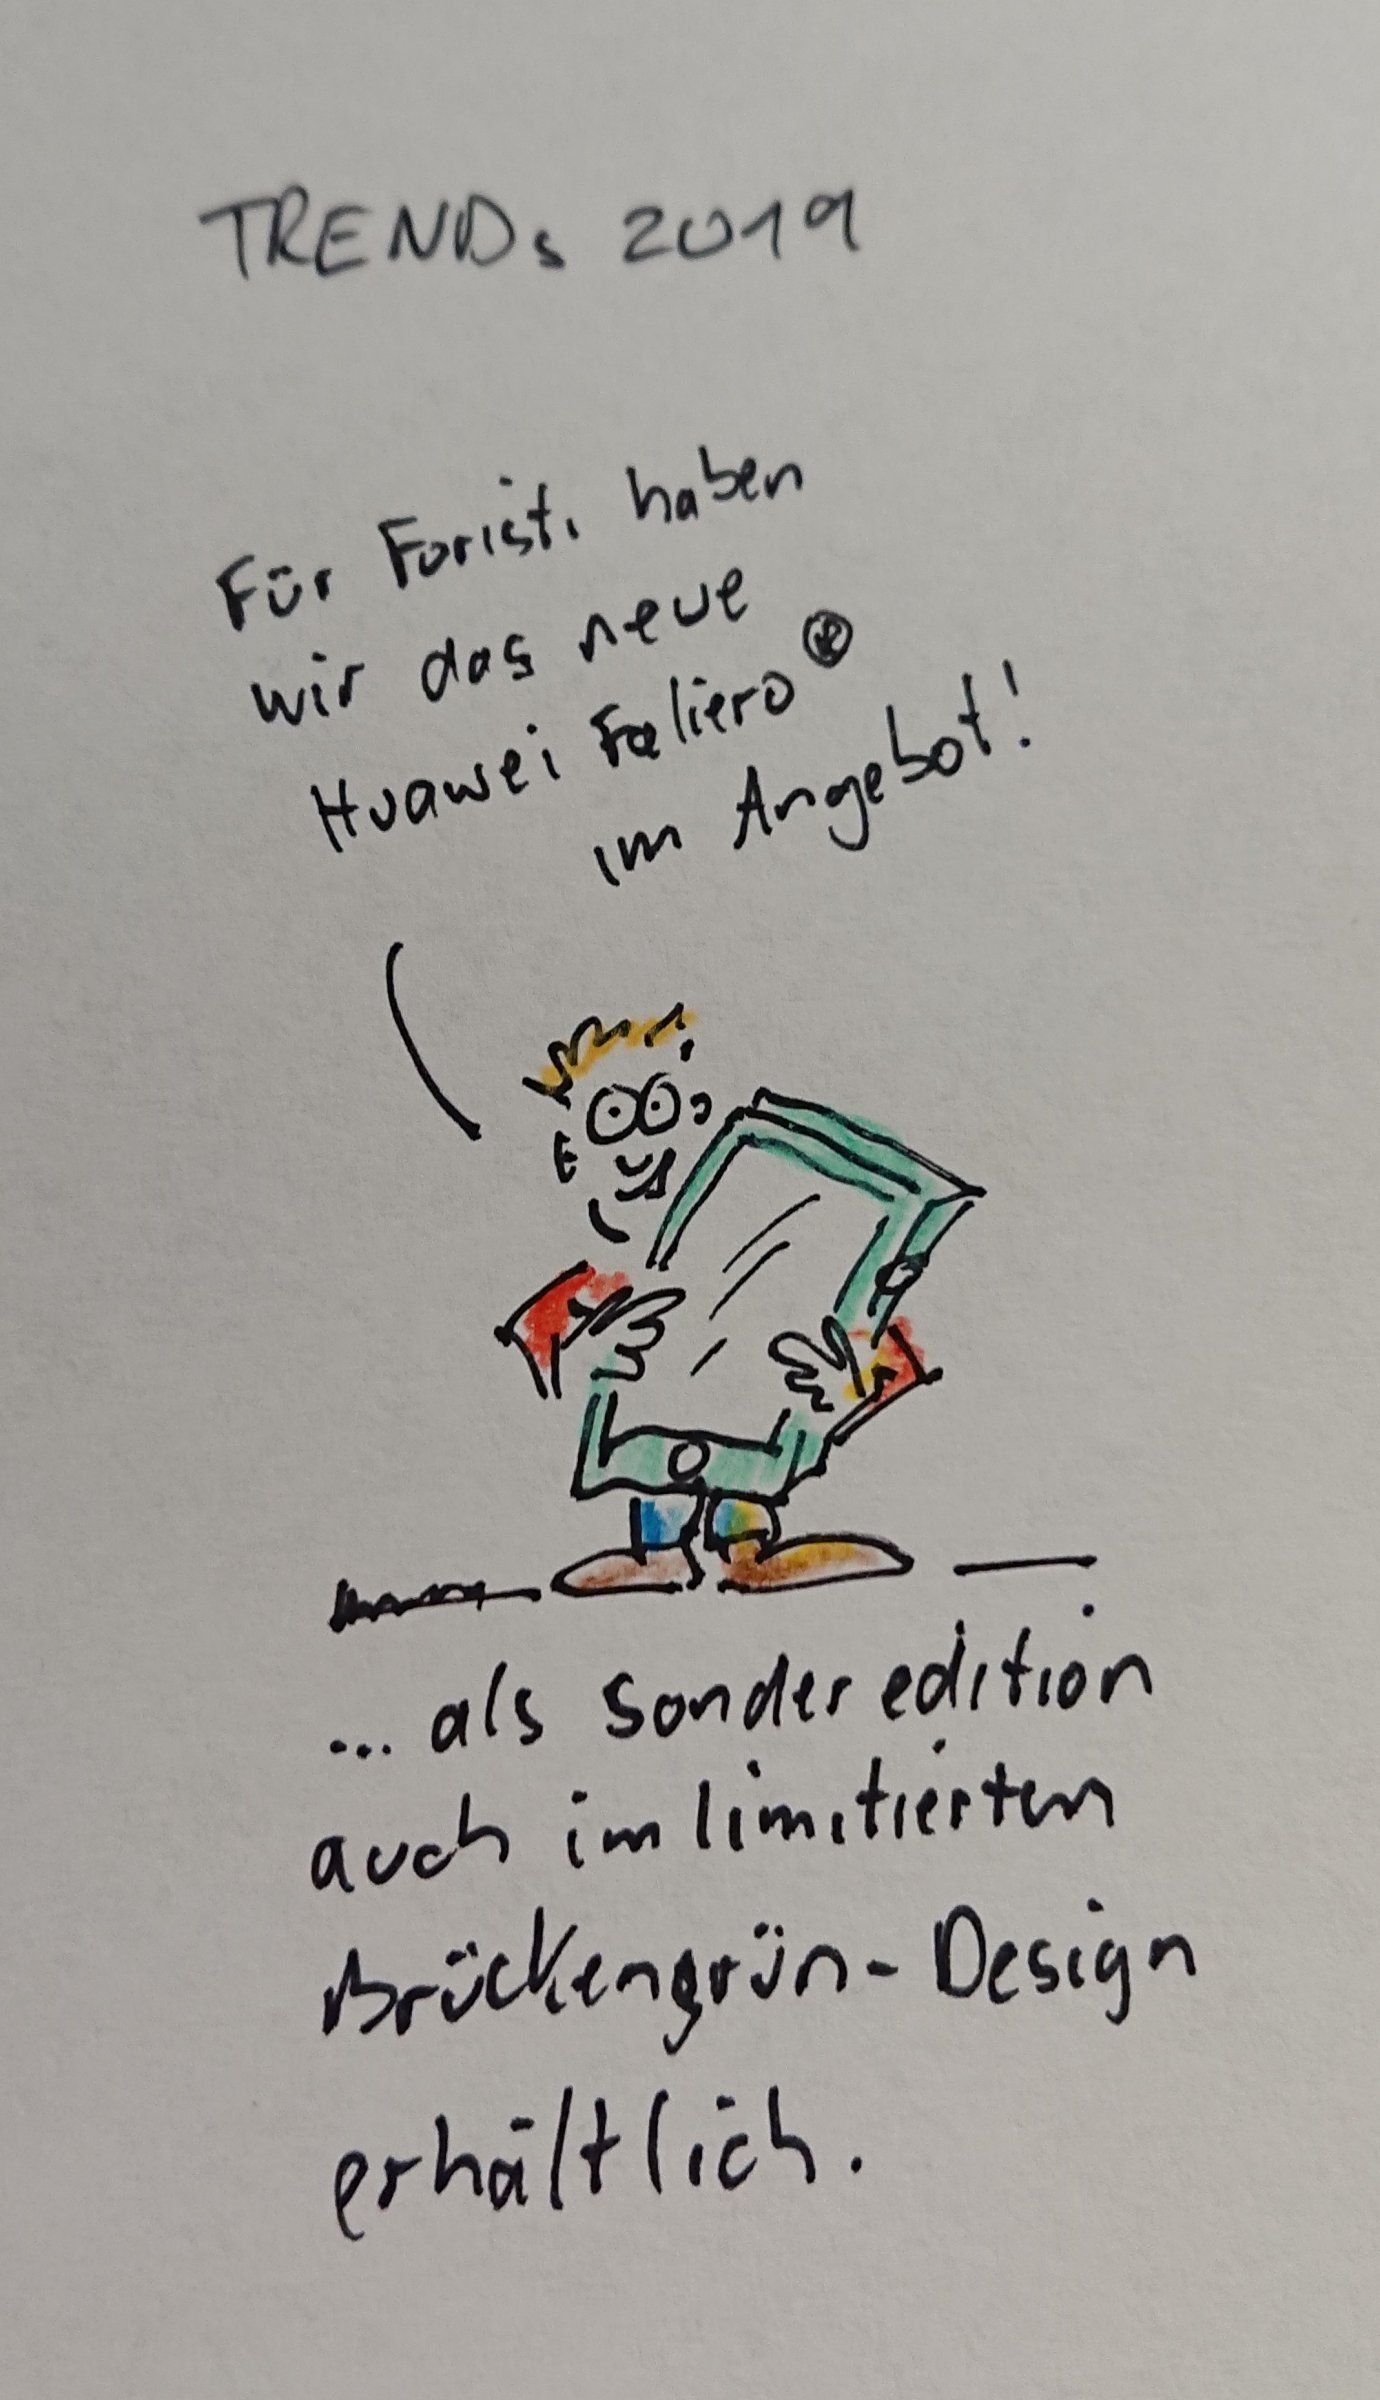 TRENDs 2019
Für Foristi haben
wir das neue
Huawei Faliero ®
im Angebot!
... als Sonderedition
auch im limitierten
Brückengrün-Design
erhältlich.